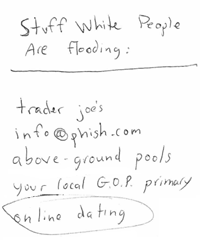 Stuff White People
Are flooding:
trader joe's
info@phish.com
above-ground pools
your local G.O.P. primary
online dating